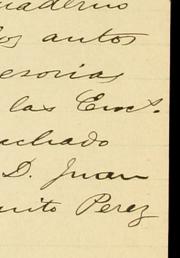 uaderno
los autos
esorias
las Enct.
uchado
D. Juan
nito Perez